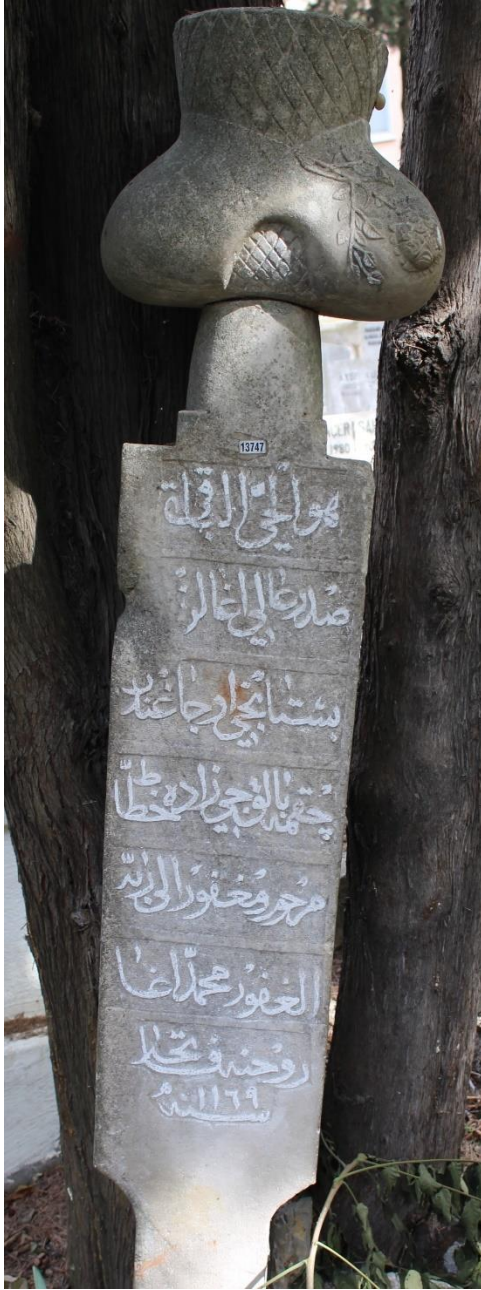 13747
هو الحي الباقي
صدر عالي اغالرى
بستانجي اوجاغندن
چقمه بالقجي زاده خطاط
مرحوم ومغفور الى ربه
الغفور محمد اغا
روحنه فاتحه
سنه ١١٦٩